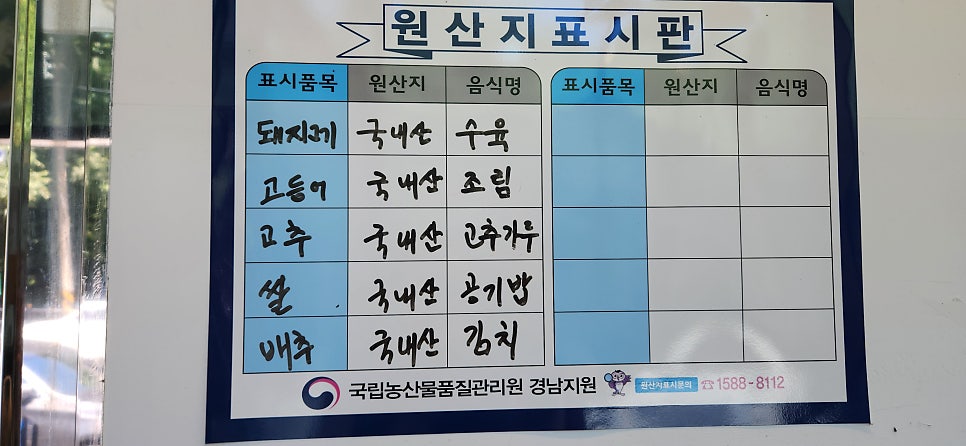 원산지표시판
표시품목 원산지 음식명 표시품목 원산지 음식명
돼지고기 국내산 수육
고등어 국내산 조림
고추 국내산 고추가루
쌀 국내산 공기밥
배추 국내산 김치
국립농산물품질관리원 경남지원 원산지표시문의 ☎1588-8112